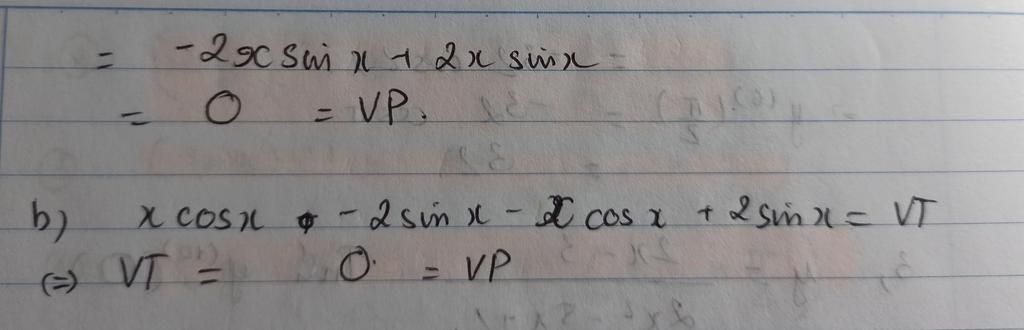 = -2x sin x + 2x sin x
= 0 = VP.
b) x cos x - 2 sin x - x cos x + 2 sin x = VT
(=) VT = 0 = VP